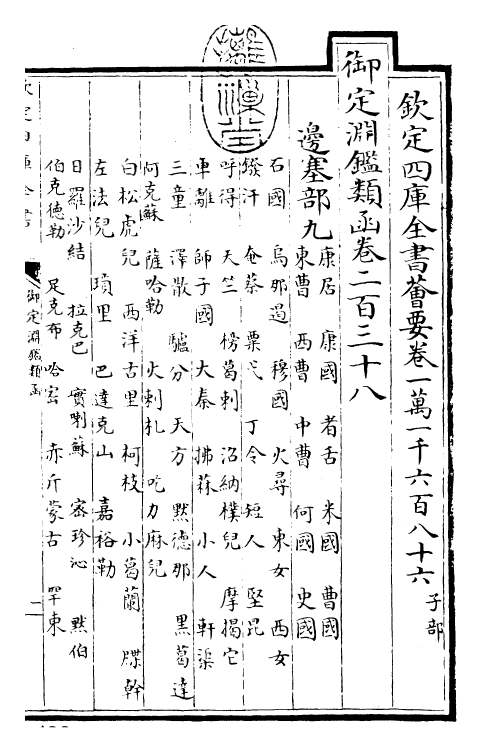 欽定四庫全書薈要卷一萬一千六百八十六 子部
御定淵鑑類函卷二百三十八
邊塞部九
康居 康國 者舌 米國 曹國
東曹 西曹 中曹 何國 史國
石國 烏那遏 穆國 火尋 東女 西女
鏺汗 奄蔡 粟弋 丁令 短人 堅昆
呼得 天竺 榜葛剌 沼納樸兒 摩揭它
車離 師子國 大秦 拂菻 小人 軒渠
三童 澤散 驢分 天方 默德那 黑葛達
阿克蘇 薩哈勒 火剌札 吃力麻兒
白松虎兒 西洋古里 柯枝 小葛蘭 牒幹
左法兒 瑣里 巴達克山 嘉裕勒
日羅沙結 拉克巴 實喇蘇 密珍沁 默伯
伯克德勒 足克布 哈密 赤斤蒙古 罕東
欽定四庫全書
御定淵鑑類函